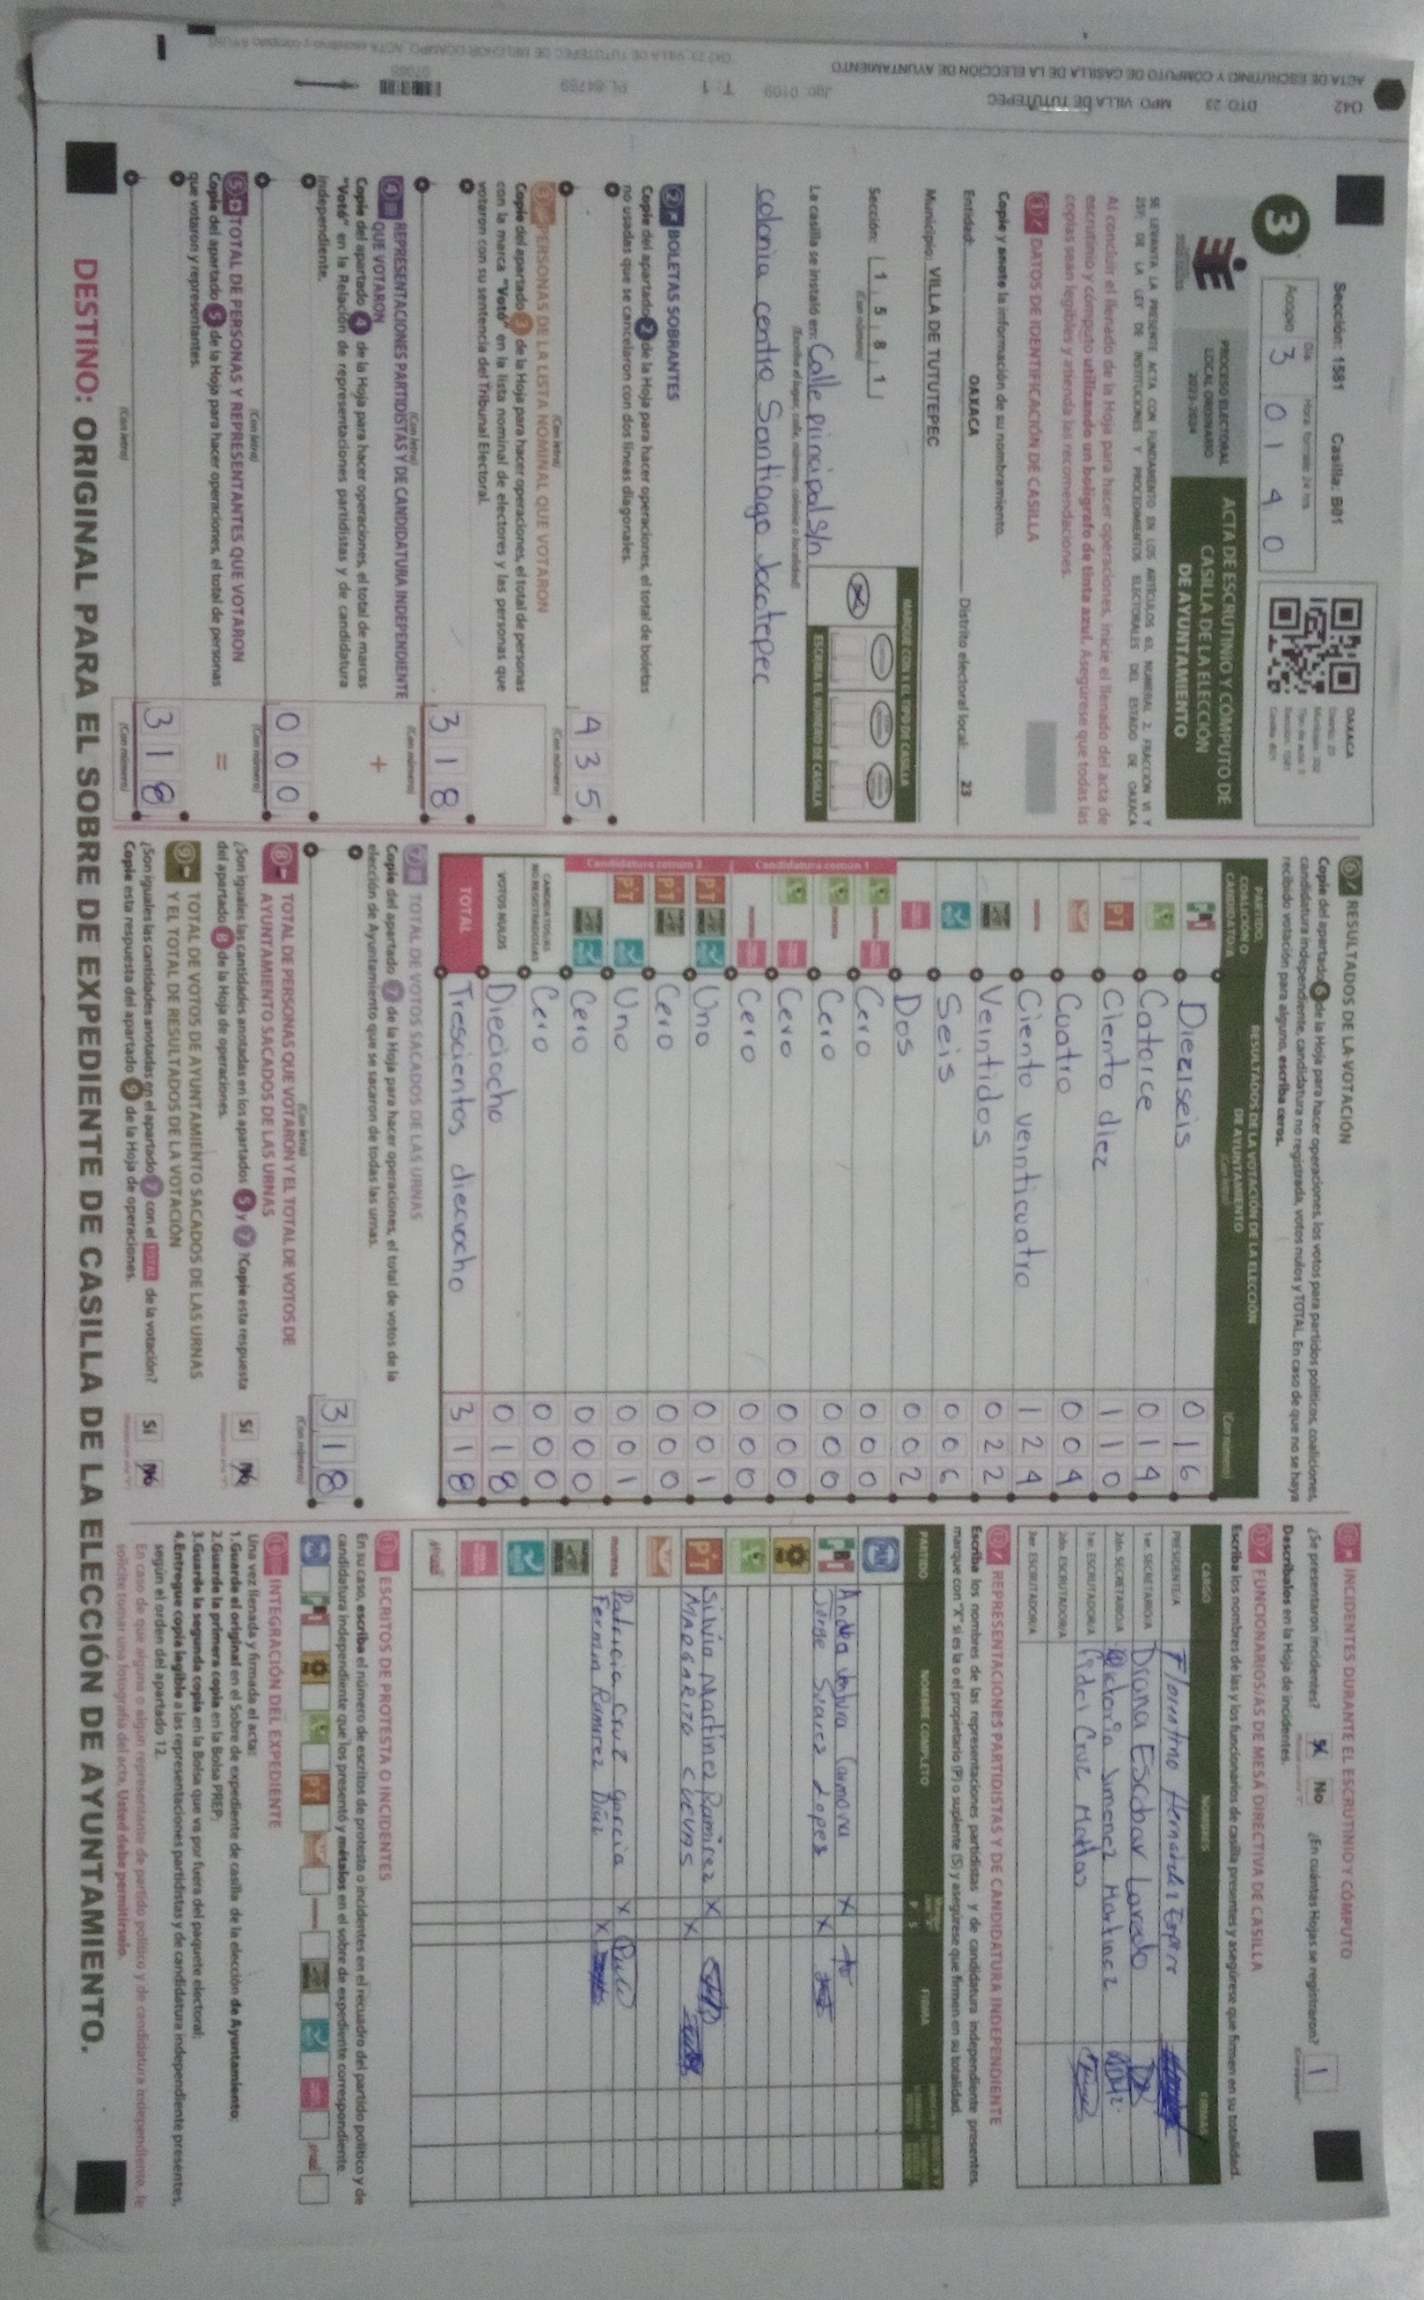 ACTA DE ESCRUTINIO Y CÓMPUTO DE CASILLA DE LA ELECCIÓN DE AYUNTAMIENTO
042 DTO 23 MPO VILLA DE TUTUTEPEC
Sección: 1581 Casilla: B01
3
Acopio
Día Hora formato 24 hrs
3 01 40
OAXACA
PROCESO ELECTORAL
LOCAL ORDINARIO
2023-2024
ACTA DE ESCRUTINIO Y CÓMPUTO DE
CASILLA DE LA ELECCIÓN
DE AYUNTAMIENTO
SE LEVANTA LA PRESENTE ACTA CON FUNDAMENTO EN LOS ARTÍCULOS 63, NUMERAL 2, FRACCIÓN VI Y
257, DE LA LEY DE INSTITUCIONES Y PROCEDIMIENTOS ELECTORALES DEL ESTADO DE OAXACA
Al concluir el llenado de la Hoja para hacer operaciones, inicie el llenado del acta de
escrutinio y cómputo utilizando un bolígrafo de tinta azul. Asegúrese que todas las
copias sean legibles y atienda las recomendaciones.
1 DATOS DE IDENTIFICACIÓN DE CASILLA
Copie y anote la información de su nombramiento.
Entidad: OAXACA Distrito electoral local: 23
Municipio: VILLA DE TUTUTEPEC
Sección: 1 5 8 1
(Con número)
MARQUE CON X EL TIPO DE CASILLA
ESCRIBA EL NÚMERO DE CASILLA
La casilla se instaló en: Calle principal S/n
(Escriba el lugar, calle, número, colonia o localidad)
colonia centro Santiago Jocotepec
2 BOLETAS SOBRANTES
Copie del apartado 2 de la Hoja para hacer operaciones, el total de boletas
no usadas que se cancelaron con dos líneas diagonales.
435
(Con letra) (Con número)
3 PERSONAS DE LA LISTA NOMINAL QUE VOTARON
Copie del apartado 3 de la Hoja para hacer operaciones, el total de personas
con la marca "Votó" en la lista nominal de electores y las personas que
votaron con su sentencia del Tribunal Electoral.
318
(Con letra) (Con número)
4 REPRESENTACIONES PARTIDISTAS Y DE CANDIDATURA INDEPENDIENTE
QUE VOTARON +
Copie del apartado 4 de la Hoja para hacer operaciones, el total de marcas
"Votó" en la Relación de representaciones partidistas y de candidatura
independiente.
000
(Con letra) (Con número)
5 TOTAL DE PERSONAS Y REPRESENTANTES QUE VOTARON =
Copie del apartado 5 de la Hoja para hacer operaciones, el total de personas
que votaron y representantes.
318
(Con letra) (Con número)
6 RESULTADOS DE LA VOTACIÓN
Copie del apartado 6 de la Hoja para hacer operaciones, los votos para partidos políticos, coaliciones,
candidatura independiente, candidatura no registrada, votos nulos y TOTAL. En caso de que no se haya
recibido votación para alguno, escriba ceros.
PARTIDO, COALICIÓN O CANDIDATO/A RESULTADOS DE LA VOTACIÓN DE LA ELECCIÓN DE AYUNTAMIENTO (Con letra) (Con número)
Dieziseis 016
Catorce 014
PT Ciento diez 110
Cuatro 004
Ciento veinticuatro 124
Veintidos 022
Seis 006
Dos 002
Candidatura común 1
Cero 000
Cero 000
Cero 000
Cero 000
Candidatura común 2
PT Uno 001
PT Cero 000
PT Uno 001
Cero 000
CANDIDATOS/AS NO REGISTRADOS/AS Cero 000
VOTOS NULOS Dieciocho 018
TOTAL Trescientos dieciocho 318
7 TOTAL DE VOTOS SACADOS DE LAS URNAS
Copie del apartado 7 de la Hoja para hacer operaciones, el total de votos de la
elección de Ayuntamiento que se sacaron de todas las urnas.
318
(Con letra) (Con número)
8 TOTAL DE PERSONAS QUE VOTARON Y EL TOTAL DE VOTOS DE
AYUNTAMIENTO SACADOS DE LAS URNAS
¿Son iguales las cantidades anotadas en los apartados 5 y 7 ? Copie esta respuesta
del apartado 8 de la Hoja de operaciones. Sí No
9 TOTAL DE VOTOS DE AYUNTAMIENTO SACADOS DE LAS URNAS
Y EL TOTAL DE RESULTADOS DE LA VOTACIÓN
¿Son iguales las cantidades anotadas en el apartado 7 con el TOTAL de la votación?
Copie esta respuesta del apartado 9 de la Hoja de operaciones. Sí No
10 INCIDENTES DURANTE EL ESCRUTINIO Y CÓMPUTO
¿Se presentaron incidentes? Sí No ¿En cuántas Hojas se registraron? 1
Descríbalos en la Hoja de incidentes.
11 FUNCIONARIOS/AS DE MESA DIRECTIVA DE CASILLA
Escriba los nombres de las y los funcionarios de casilla presentes y asegúrese que firmen en su totalidad.
CARGO NOMBRES FIRMAS
PRESIDENTE/A Florentino Hernandez
1er. SECRETARIO/A Diana Escobar
2do. SECRETARIO/A Victoria Jimenez Martinez
1er. ESCRUTADOR/A Fidel Cruz
2do. ESCRUTADOR/A
3er. ESCRUTADOR/A
12 REPRESENTACIONES PARTIDISTAS Y DE CANDIDATURA INDEPENDIENTE
Escriba los nombres de las representaciones partidistas y de candidatura independiente presentes,
marque con "X" si es la o el propietario (P) o suplente (S) y asegúrese que firmen en su totalidad.
PARTIDO NOMBRE COMPLETO P S FIRMA
PAN
Andrea Ventura Carmona X
Jorge Suarez Lopes X
PT Silvia Martinez Ramirez X
MARGARITO CUEVAS X
morena Patricia Cruz garcia X
Fermin Ramirez Diaz X
13 ESCRITOS DE PROTESTA O INCIDENTES
En su caso, escriba el número de escritos de protesta o incidentes en el recuadro del partido político y de
candidatura independiente que los presentó y métalos en el sobre de expediente correspondiente.
14 INTEGRACIÓN DEL EXPEDIENTE
Una vez llenada y firmada el acta:
1.Guarde el original en el Sobre de expediente de casilla de la elección de Ayuntamiento;
2.Guarde la primera copia en la Bolsa PREP;
3.Guarde la segunda copia en la Bolsa que va por fuera del paquete electoral;
4.Entregue copia legible a las representaciones partidistas y de candidatura independiente presentes,
según el orden del apartado 12.
En caso de que alguna o algún representante de partido político y de candidatura independiente, le
solicite tomar una fotografía del acta, Usted debe permitírselo.
DESTINO: ORIGINAL PARA EL SOBRE DE EXPEDIENTE DE CASILLA DE LA ELECCIÓN DE AYUNTAMIENTO.